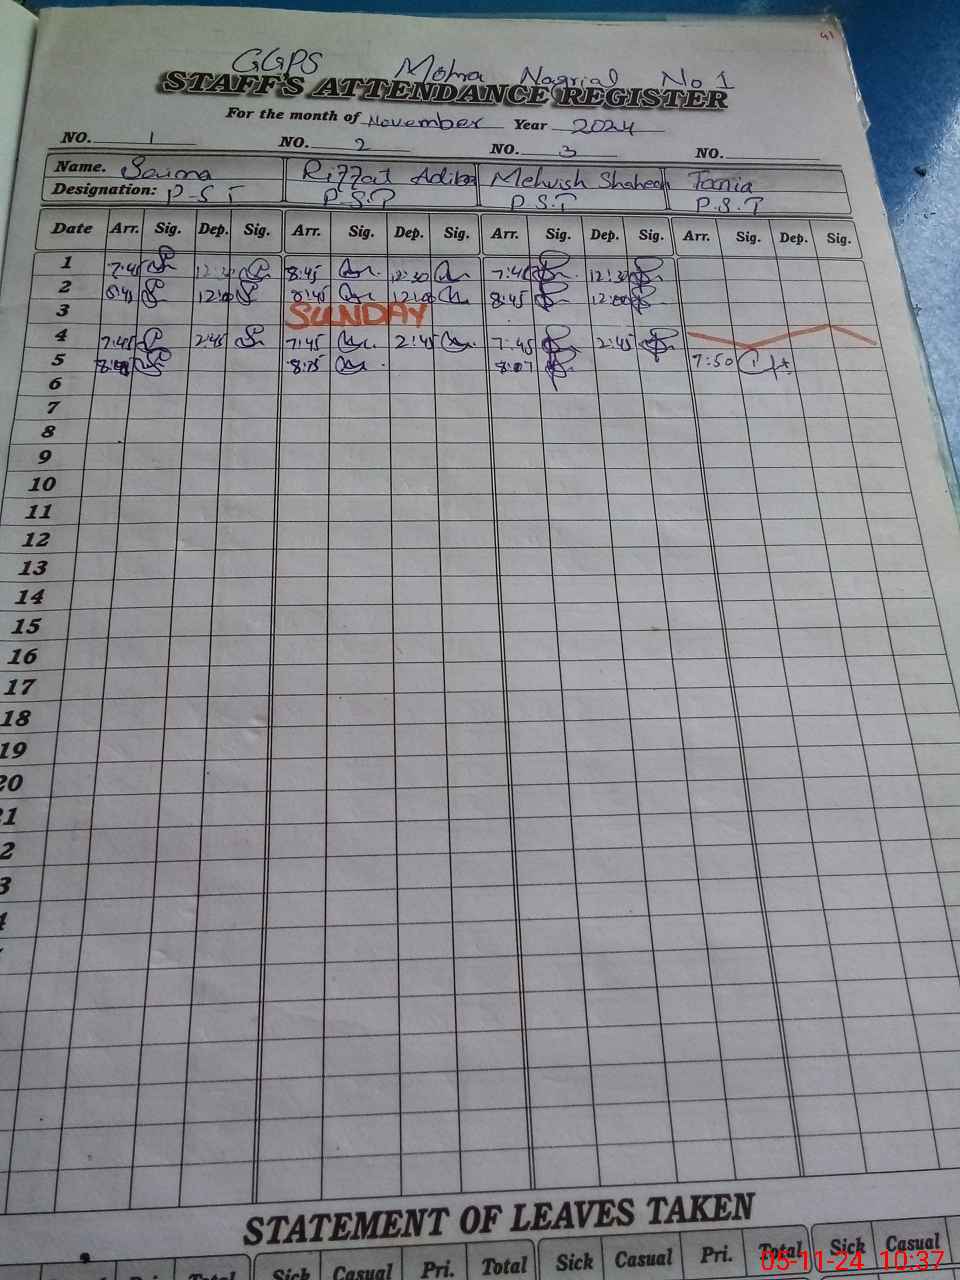 41
GGPS Mohra Nagrial No 1
STAFF'S ATTENDANCE REGISTER
For the month of November Year 2024
NO. 1 NO. 2 NO. 3 NO.
Name. Saima Riffat Adiba Mehvish Shaheen Tania
Designation: P-S T P.S.T P.S.T P.S.T
Date Arr. Sig. Dep. Sig. Arr. Sig. Dep. Sig. Arr. Sig. Dep. Sig. Arr. Sig. Dep. Sig.
1 7:45 12:30 8:45 12:30 7:45 12:30
2 8:45 12:00 8:45 12:00 8:45 12:00
3 SUNDAY
4 7:45 2:45 7:45 2:45 7:45 2:45
5 8:15 8:07 7:50
6
7
8
9
10
11
12
13
14
15
16
17
18
19
20
1
2
3
4
STATEMENT OF LEAVES TAKEN
Pri. Total Sick Casual Pri. Total Sick Casual Pri. Total Sick Casual
05-11-24 10:37